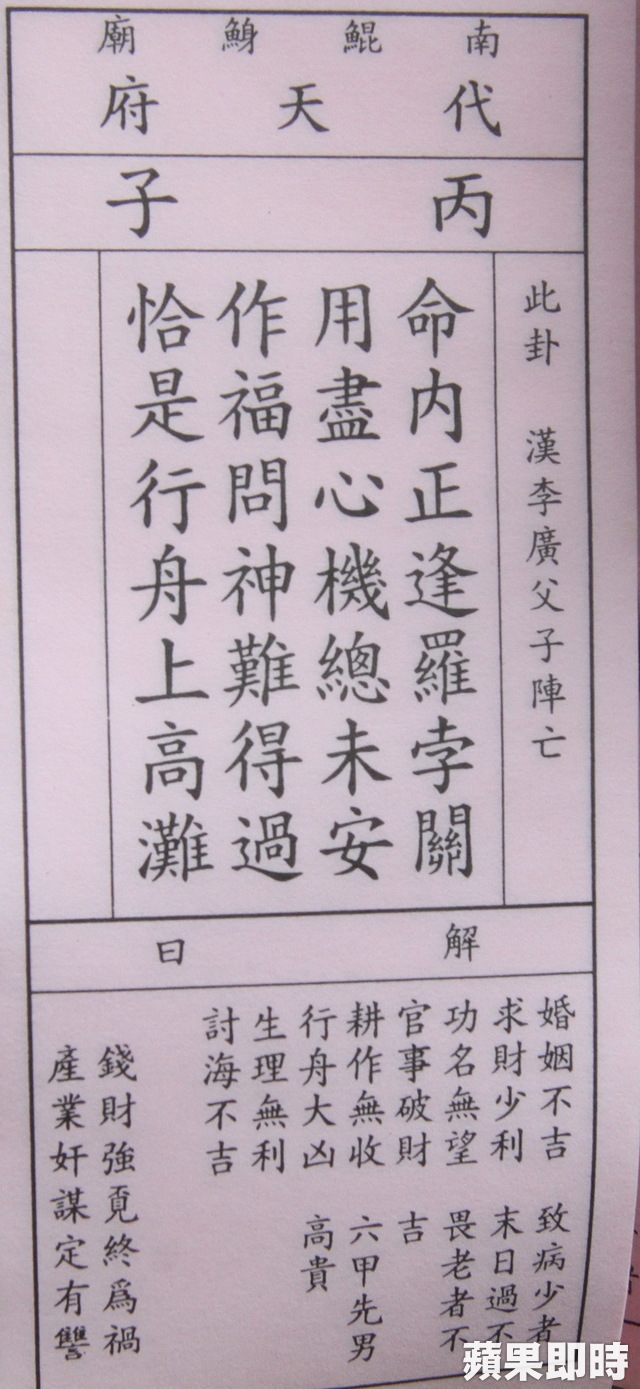 南鯤鯓廟
代天府
丙子
此卦 漢李廣父子陣亡
命內正逢羅孛關
用盡心機總未安
作福問神難得過
恰是行舟上高灘
解曰
婚姻不吉 致病少者
求財少利 末日過不
功名無望 畏老者不
官事破財 吉
耕作無收 六甲先男
行舟大凶 高貴
生理無利
討海不吉
錢財強覔終爲禍
產業奸謀定有讐
蘋果即時